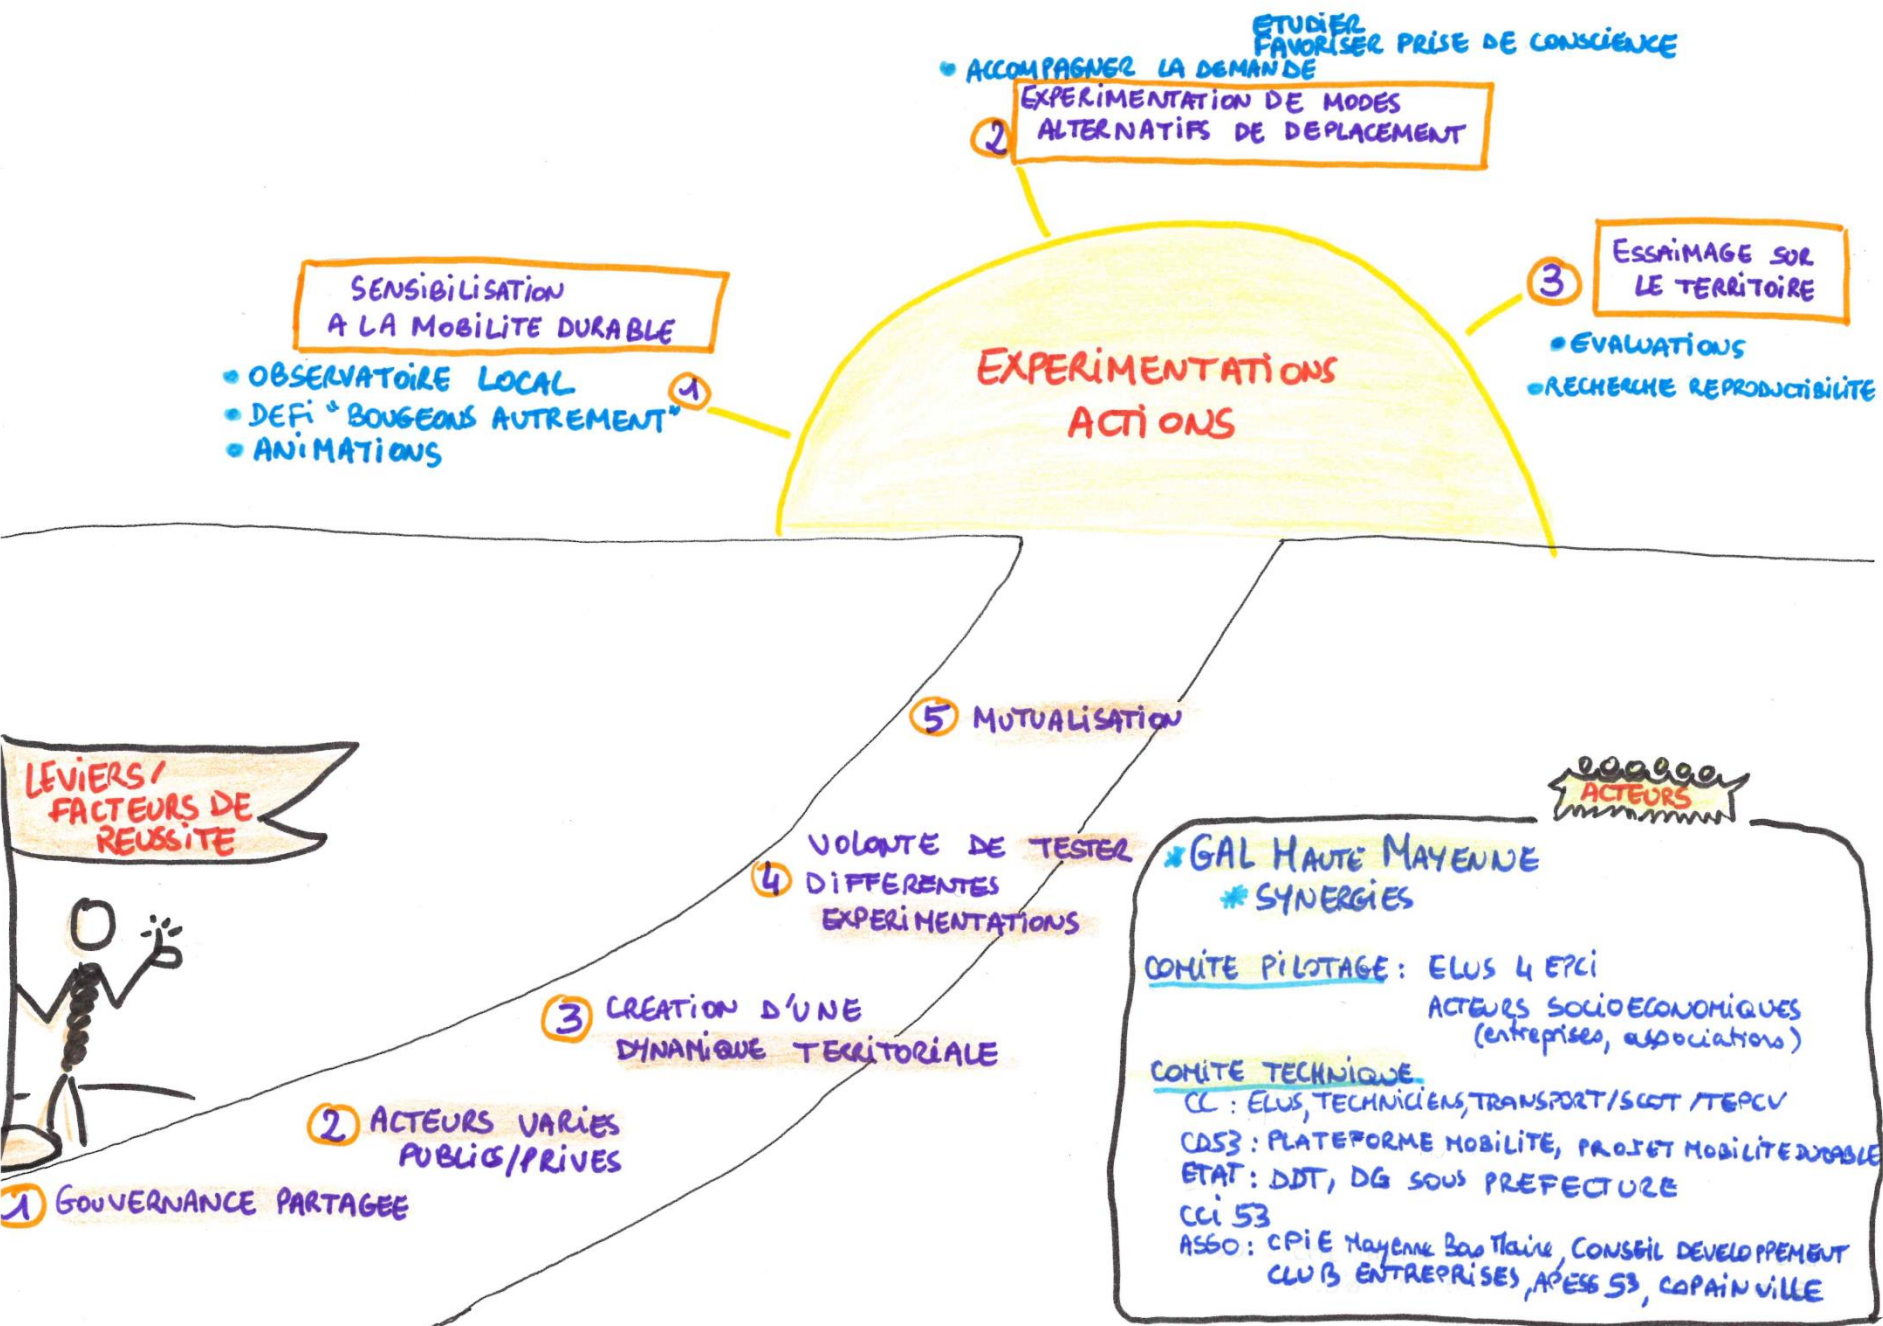 ETUDIER
FAVORISER PRISE DE CONSCIENCE
• ACCOMPAGNER LA DEMANDE
2
EXPERIMENTATION DE MODES
ALTERNATIFS DE DEPLACEMENT
SENSIBILISATION
A LA MOBILITE DURABLE
1
• OBSERVATOIRE LOCAL
• DEFI "BOUGEONS AUTREMENT"
• ANIMATIONS
3
ESSAIMAGE SUR
LE TERRITOIRE
• EVALUATIONS
• RECHERCHE REPRODUCTIBILITE
EXPERIMENTATIONS
ACTIONS
LEVIERS/
FACTEURS DE
REUSSITE
5 MUTUALISATION
4 VOLONTE DE TESTER
DIFFERENTES
EXPERIMENTATIONS
3 CREATION D'UNE
DYNAMIQUE TERRITORIALE
2 ACTEURS VARIES
PUBLICS/PRIVES
1 GOUVERNANCE PARTAGEE
ACTEURS
* GAL HAUTE MAYENNE
* SYNERGIES
COMITE PILOTAGE : ELUS 4 EPCI
ACTEURS SOCIOECONOMIQUES
(entreprises, associations)
COMITE TECHNIQUE
CC : ELUS, TECHNICIENS, TRANSPORT/SCOT/TEPCV
CD53 : PLATEFORME MOBILITE, PROJET MOBILITE DURABLE
ETAT : DDT, DG SOUS PREFECTURE
CCI 53
ASSO : CPIE Mayenne Bas Maine, CONSEIL DEVELOPPEMENT
CLUB ENTREPRISES, APESS 53, COPAINVILLE